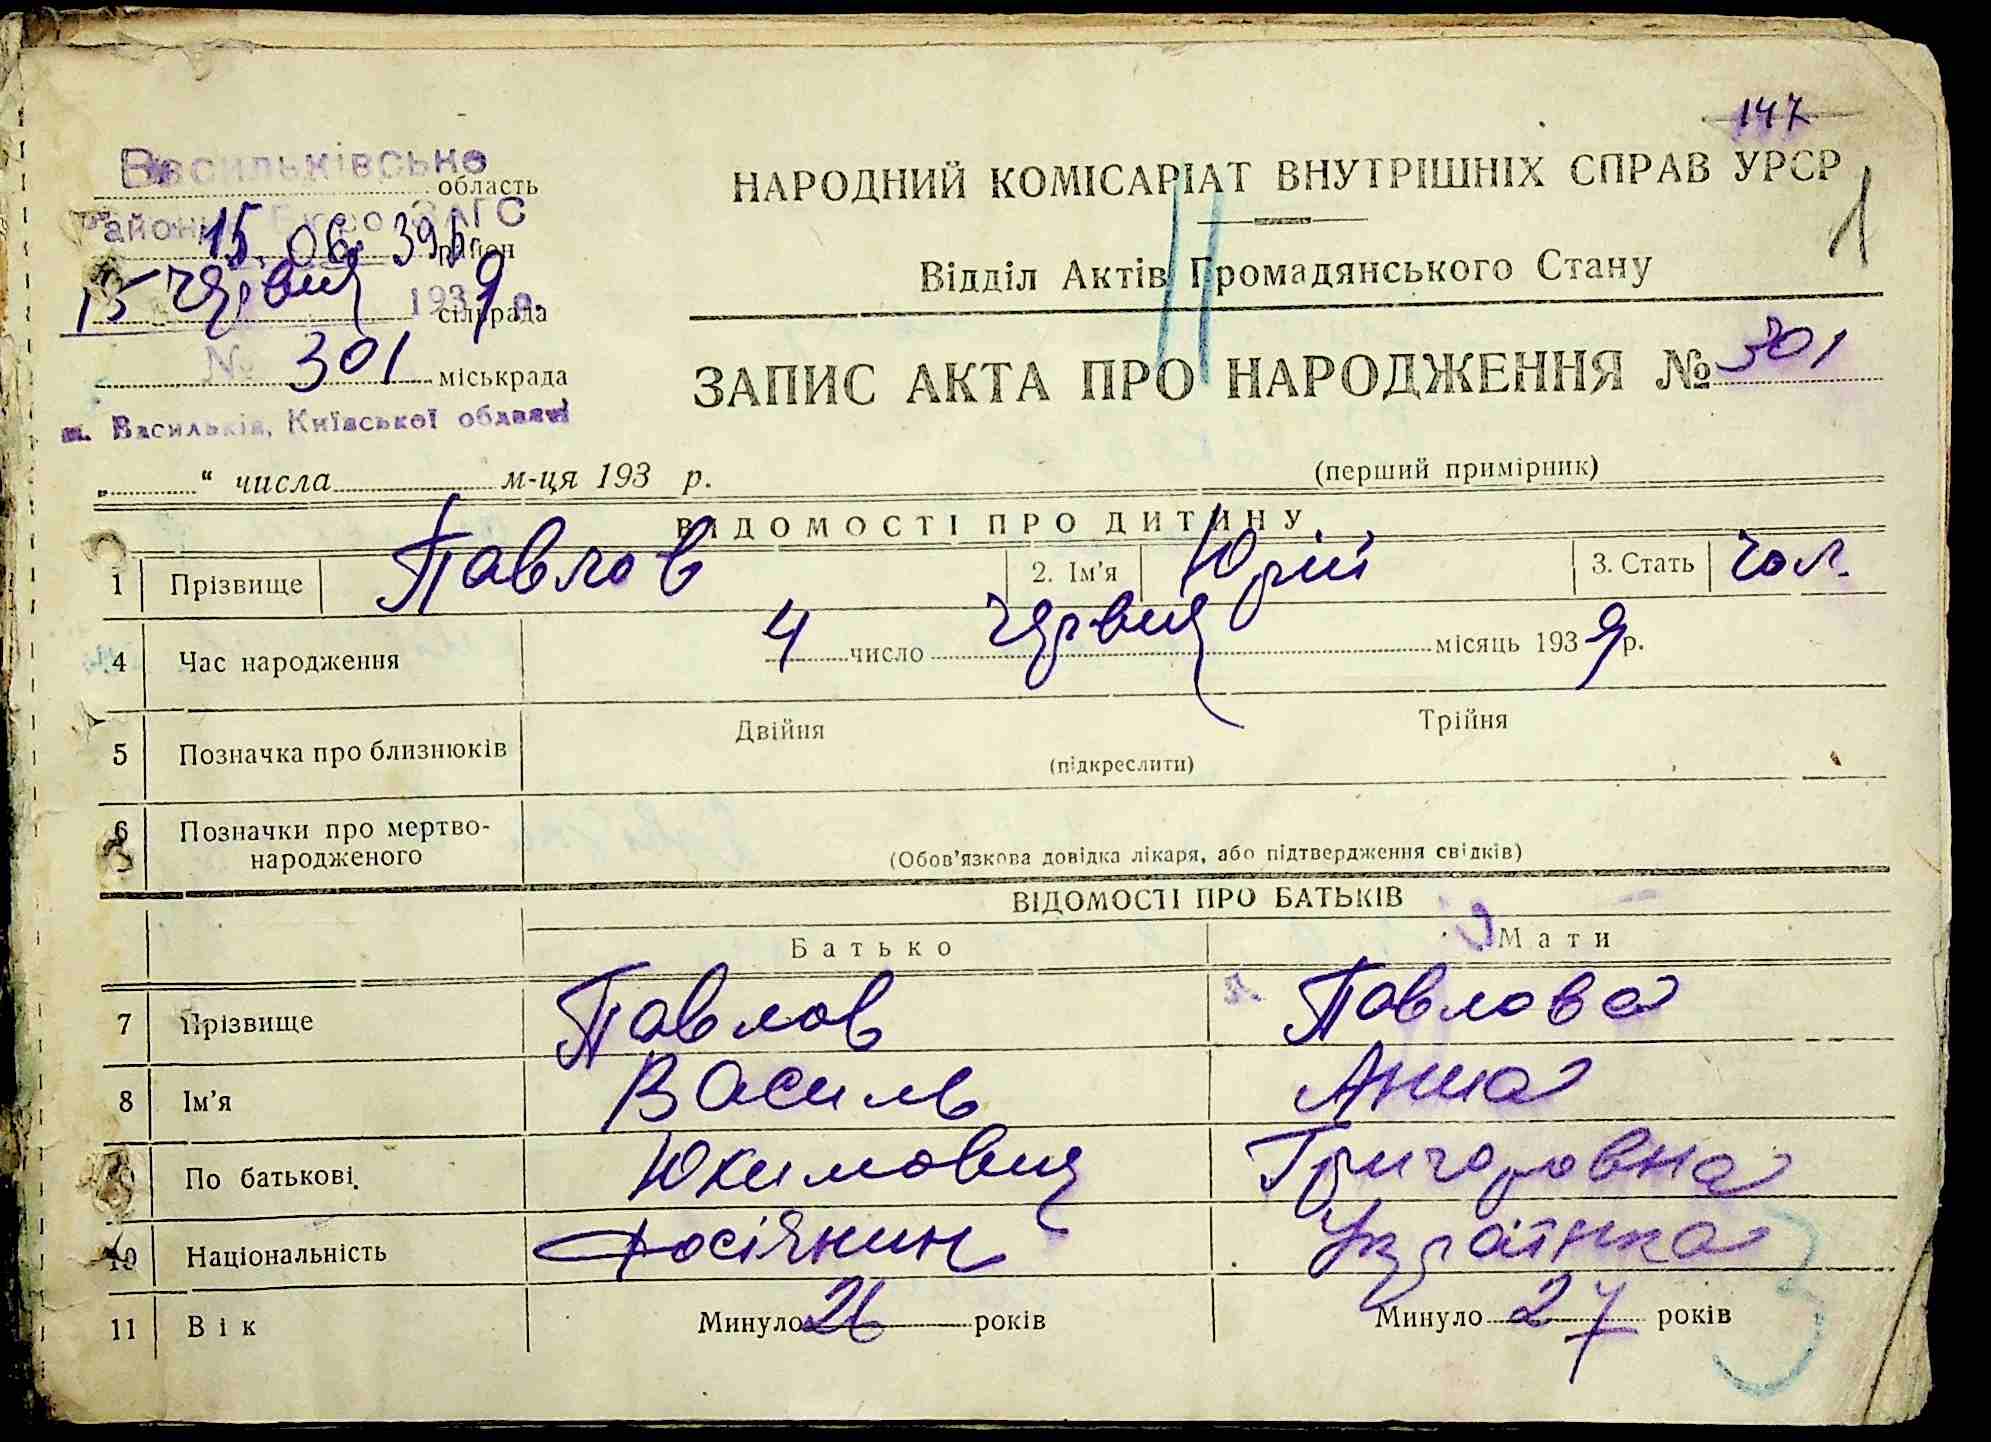 147
1
Васильківське
область
Районне Бюро ЗАГС
15. 06. 39 р.
район
15 червня 1939 р.
сільрада
№ 301
міськрада
м. Васильків, Київської області
„ “ числа м-ця 193 р.
НАРОДНИЙ КОМІСАРІАТ ВНУТРІШНІХ СПРАВ УРСР
Відділ Актів Громадянського Стану
ЗАПИС АКТА ПРО НАРОДЖЕННЯ № 301
(перший примірник)
ВІДОМОСТІ ПРО ДИТИНУ
1 Прізвище Павлов 2. Ім’я Юрій 3. Стать чол.
4 Час народження 4 число червня місяць 1939 р.
5 Позначка про близнюків Двійня Трійня
(підкреслити)
6 Позначки про мертво-
народженого (Обов’язкова довідка лікаря, або підтвердження свідків)
ВІДОМОСТІ ПРО БАТЬКІВ
Батько Мати
7 Прізвище Павлов Павлова
8 Ім’я Василь Анна
9 По батькові Юхимович Григоровна
10 Національність Росіянин Українка
11 Вік Минуло 26 років Минуло 27 років